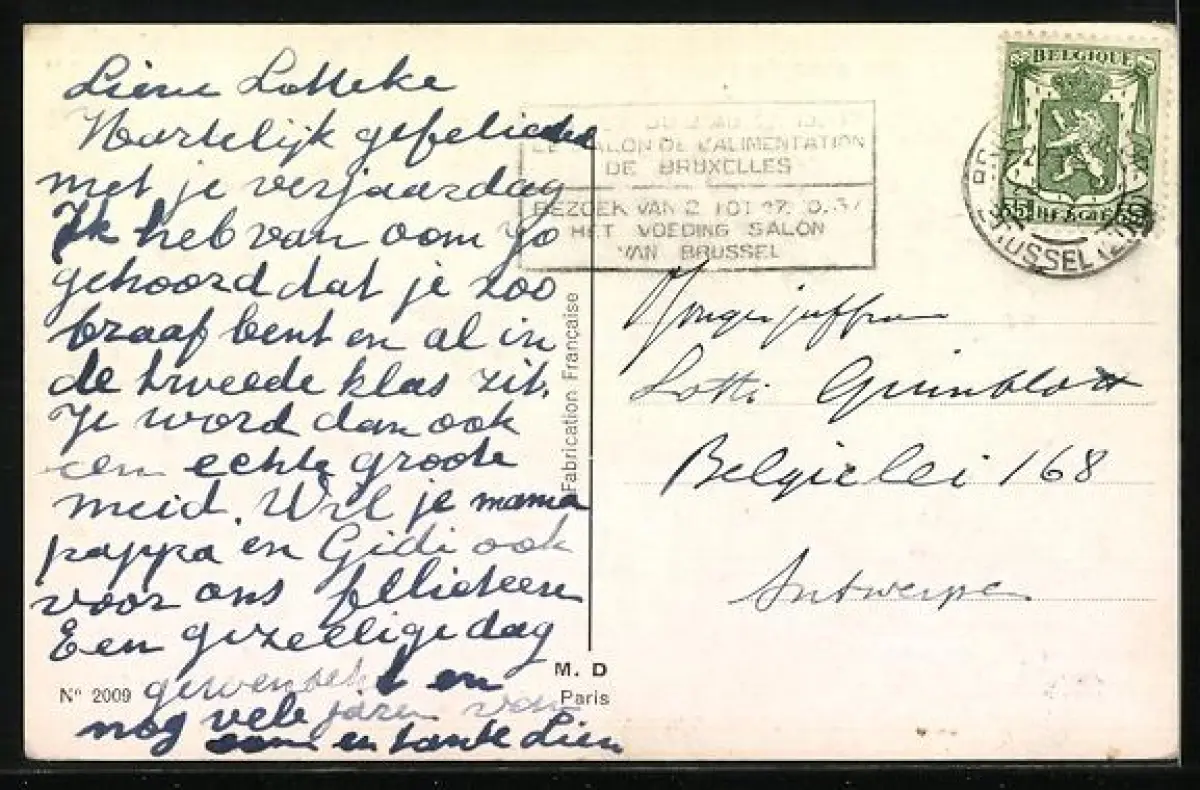 Lieve Lotteke
Hartelijk gefeliciteerd
met je verjaardag
Ik heb van oom Jo
gehoord dat je zoo
braaf bent en al in
de tweede klas zit.
Je word dan ook
een echte groote
meid. Wil je mama
pappa en Gidi ook
voor ons felliciteeren
Een gezellige dag
gewenscht en
nog vele jaren van
en tante Lien
Nº 2009
Fabrication Française
M. D
Paris
SALON DE L'ALIMENTATION
DE BRUXELLES
BEZOEK VAN 2 TOT 17.10.37
HET VOEDING SALON
VAN BRUSSEL
BELGIQUE
35 BELGIE 35
Jongejuffrouw
Lotti Grünblatt
Belgielei 168
Antwerpen